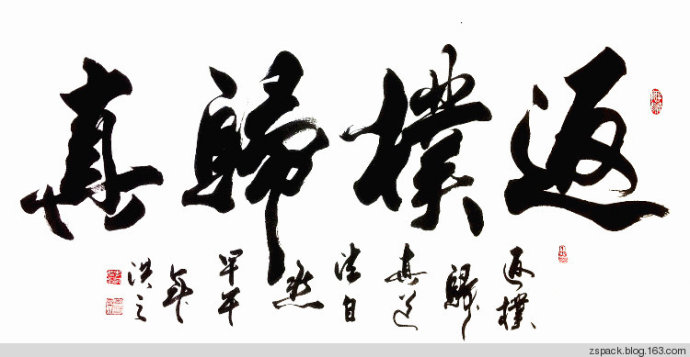 返樸歸真
返樸
歸
真道
法自
然
甲午
年
洪之
zspack.blog.163.com